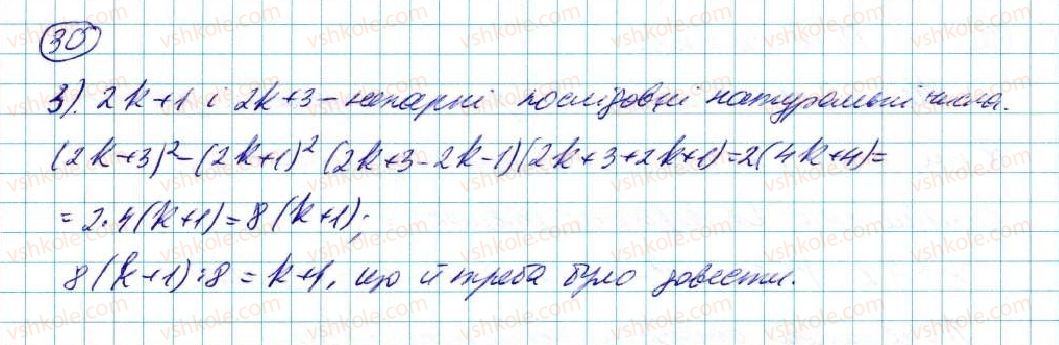 30
3). 2k+1 і 2k+3 – непарні послідовні натуральні числа.
(2k+3)²–(2k+1)² (2k+3-2k-1)(2k+3+2k+1)=2(4k+4)=
=2·4(k+1)=8(k+1);
8(k+1):8=k+1, що й треба було довести.